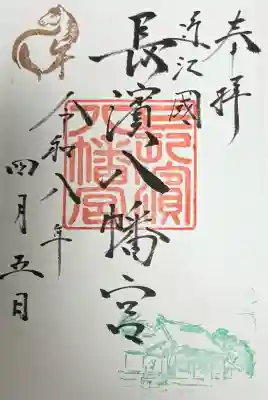 奉拝
近江國
長濱八幡宮
令和八年
四月五日
長濱
八幡宮